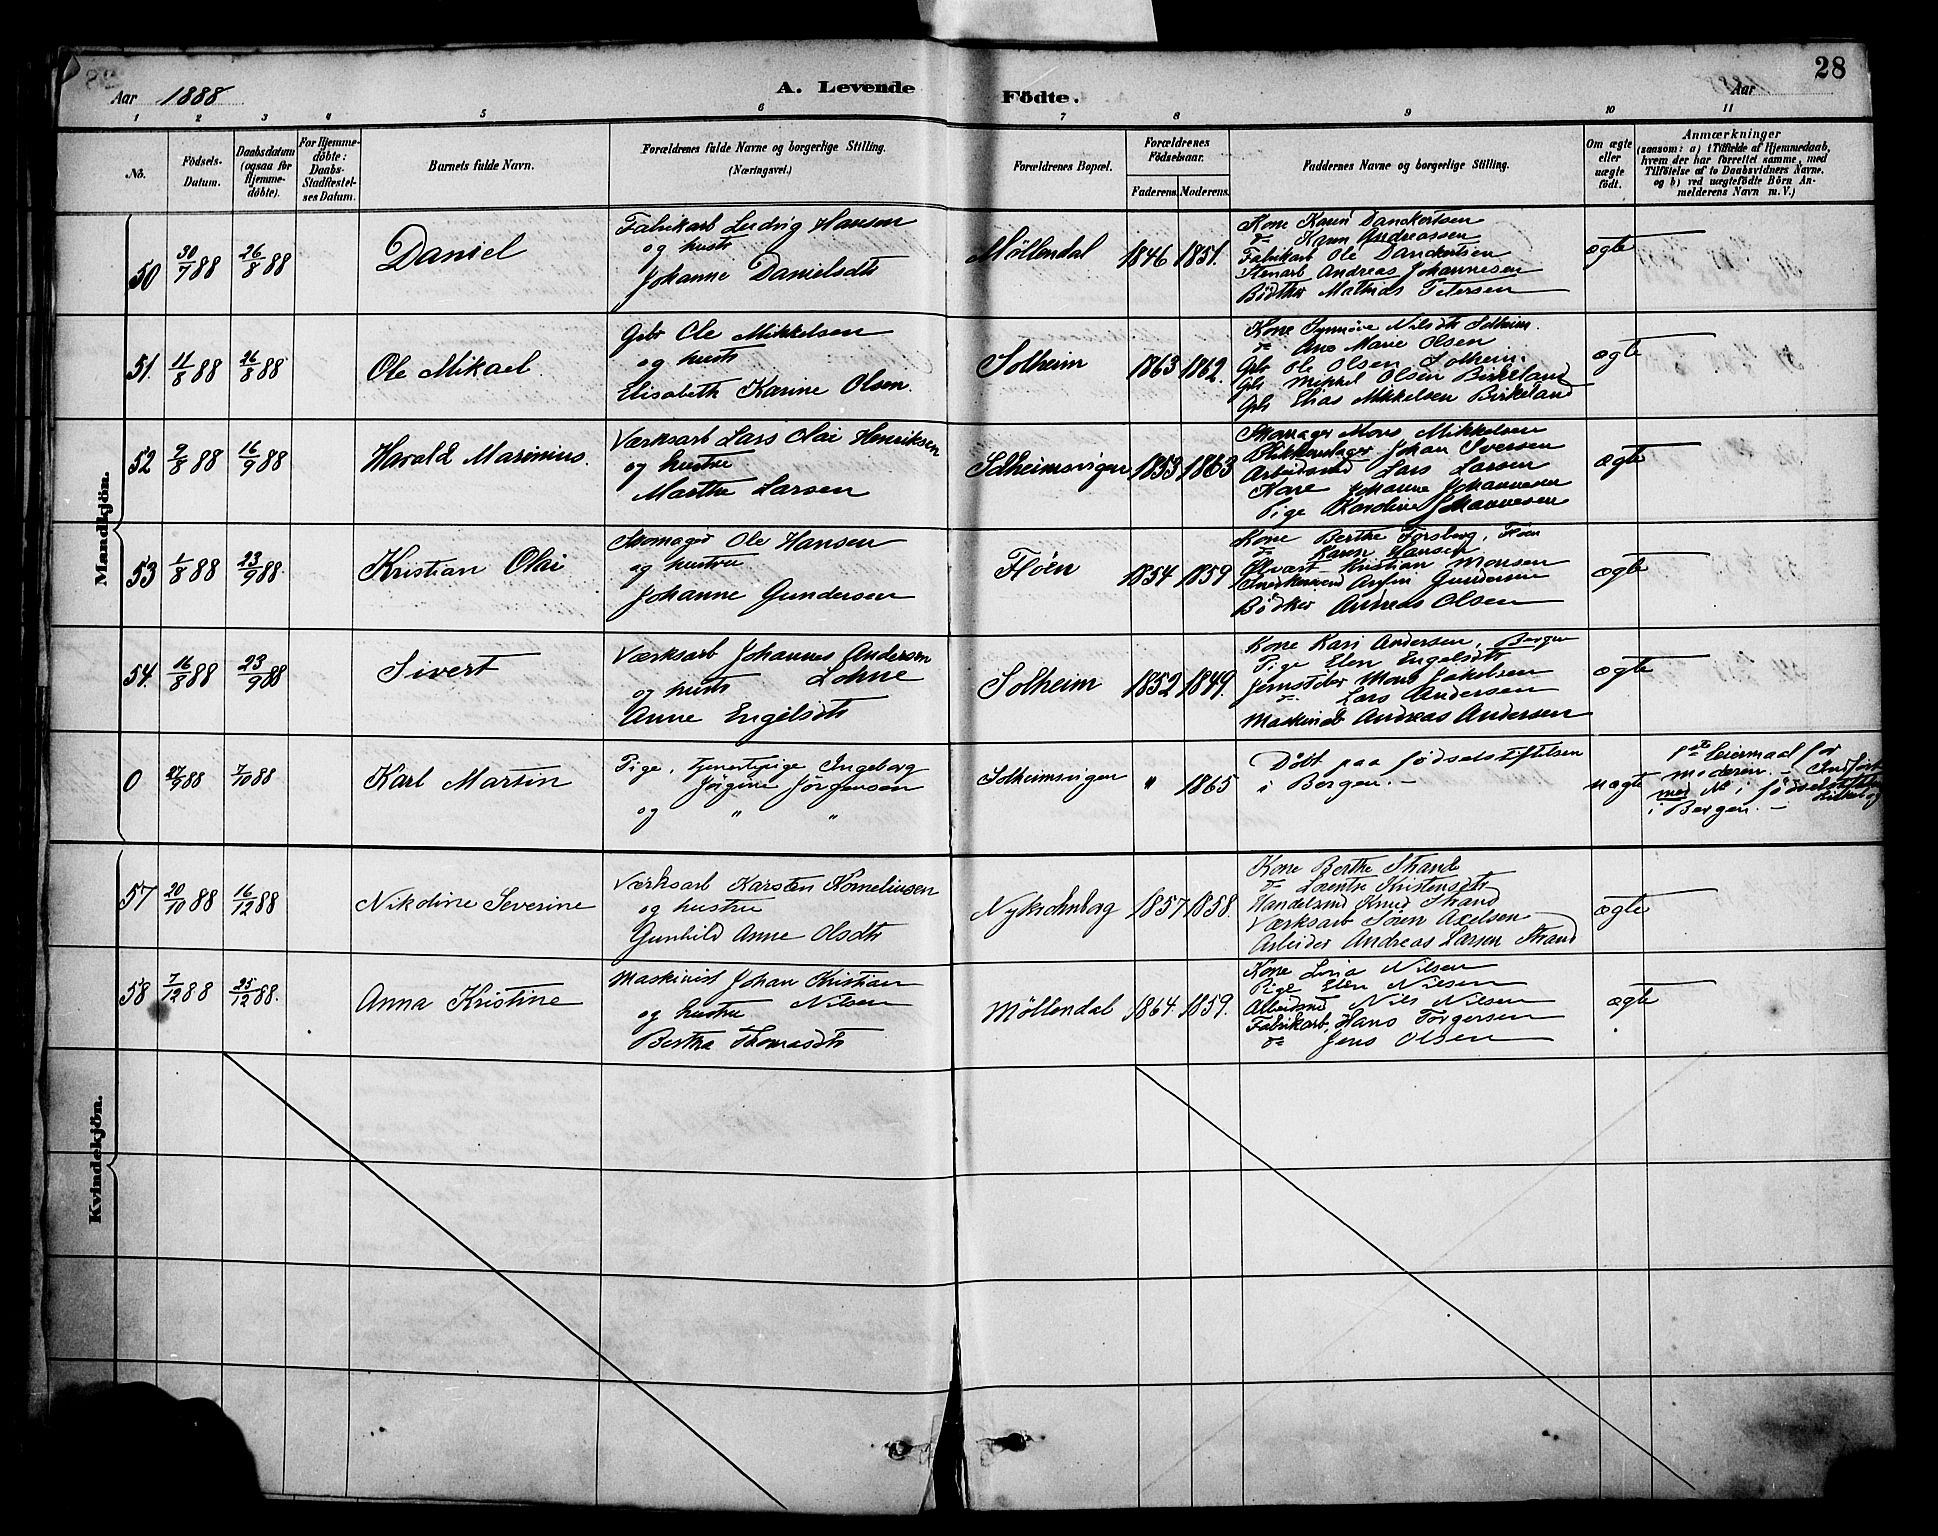 28
Aar 1888
A. Levende Födte.
Aar
1 2 3 4 5 6 7 8 9 10 11
No.
Födsels-Datum.
Daabsdatum (ogsaa for Hjemme-döbte).
For Hjemme-döbte: Daabs-Stadfæstel-ses Datum.
Barnets fulde Navn.
Forældrenes fulde Navne og borgerlige Stilling.
(Næringsvei.)
Forældrenes Bopæl.
Forældrenes Födselsaar.
Faderens. Moderens.
Faddernes Navne og borgerlige Stilling.
Om ægte eller uægte födt.
Anmærkninger
(saasom: a) i Tilfælde af Hjemmedaab, hvem der har forrettet samme, med Tilföielse af to Daabsvidners Navne, og b) ved uægtefödte Börn An-melderens Navn m. V.)
Mandkjön.
50 30/7 88 26/8 88 Daniel
Fabrikarb Ludvig Hansen
og hustr
Johanne Danielsdtr
Møllendal 1846 1851.
Kone Karen Danckertsen
do Karen Andreassen
Fabrikarb Ole Danckertsen
Stenarb Andreas Johannesen
Bödker Mathias Petersen
ægte
51. 11/8 88 26/8 88 Ole Mikael.
Gbr Ole Mikkelsen
og hustr
Elisabeth Karine Olsen.
Solheim 1863 1862.
Kone Synnöve Nilsdtr Solheim.
do Ane Marie Olsen
Gbr Ole Olsen Solheim.
Gbr Mikkel Olsen Birkeland
Gbr Elias Mikkelsen Birkeland
ægte
52 9/8 88 16/9 88 Harald Marinius.
Værksarb Lars Olai Henriksen
og hustru
Marthe Larsen
Solheimsvigen 1853 1863
Skomager Mons Mikkelsen
Blikkenslager Johan Iversen
Arbeidsmd Lars Larsen
Kone Johanne Johannesen
Pige Karoline Johannesen
ægte
53 1/8 88 23/9 88. Kristian Olai
Skomager Ole Hansen
og hustru
Johanne Gundersen
Flöen 1854 1859
Kone Berthe Forsberg, Flöen
do Karen Hansen
Kristian Monsen
Snedkersvend Arfin Gundersen
Bödker Andreas Olsen
ægte
54. 16/8 88 23/9 88 Sivert
Værksarb Johannes Andersen
og hustr Lohne
Anne Engelsdtr
Solheim 1852 1849.
Kone Kari Andersen, Bergen
Pige Elen Engelsdtr
Jernstöber Mons Jakobsen
do Lars Andersen
Maskinarb Andreas Andersen
ægte
0 27/9 88 7/10 88 Karl Martin
Pige, tjenestepige Ingeborg
Jörgine Jörgensen
og " "
Solheimsvigen " 1865
Döbt paa födselsstiftelsen
i Bergen. –
uægte
1ste Leiermaal for
moderen. – Indfört
med No i födselsstiftelsens
i Bergen. –
Kvindekjön.
57 20/10 88 16/12 88 Nikoline Severine
Værksarb Karsten Korneliusen
og hustru
Gunhild Anne Olsdtr
Nykronborg 1857 1858.
Kone Berthe Strand
do Lorentse Kristensdtr
Handelsmd Knud Strand
Værksarb Sören Axelsen
Arbeider Andreas Larsen Strand
ægte
58 7/12 88 25/12 88. Anna Kristine
Maskinist Johan Kristian
og hustru Nilsen
Bertha Thomasdtr
Möllendal 1864. 1859.
Kone Lina Nilsen
Pige Elen Nilsen
Arbeidsmd Nils Nilsen
Fabrikarb, Hans Torgersen
do Jens Olsen
ægte